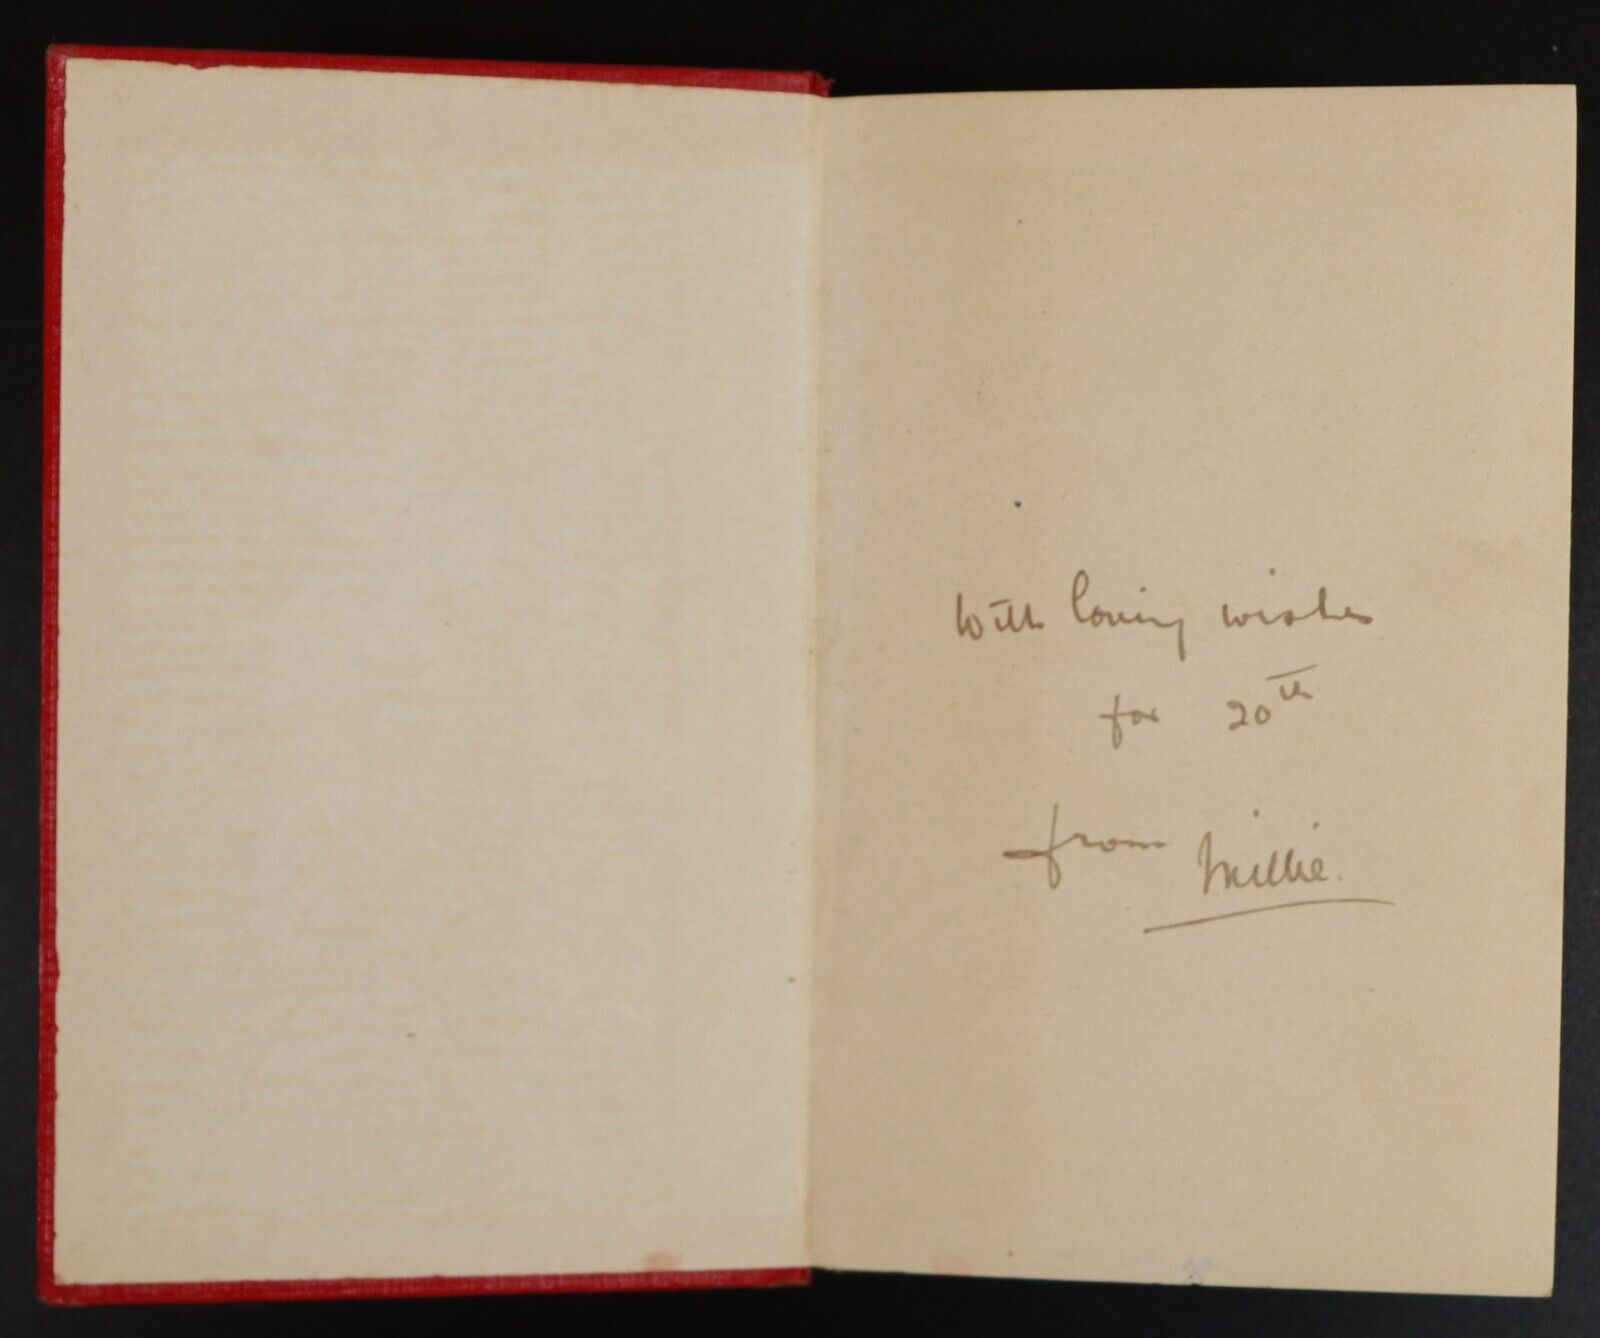 With loving wishes
for 20th
from Millie.